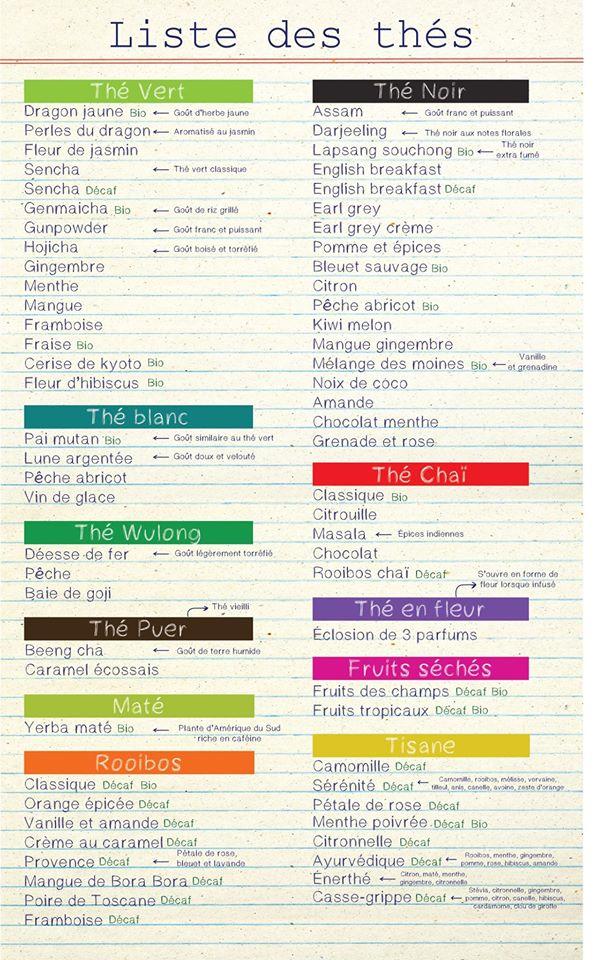 Liste des thés
Thé Vert
Dragon jaune Bio ← Goût d'herbe jaune
Perles du dragon ← Aromatisé au jasmin
Fleur de jasmin
Sencha ← Thé vert classique
Sencha Décaf
Genmaicha Bio ← Goût de riz grillé
Gunpowder ← Goût franc et puissant
Hojicha ← Goût boisé et torréfié
Gingembre
Menthe
Mangue
Framboise
Fraise Bio
Cerise de kyoto Bio
Fleur d'hibiscus Bio
Thé blanc
Pai mutan Bio ← Goût similaire au thé vert
Lune argentée ← Goût doux et velouté
Pêche abricot
Vin de glace
Thé Wulong
Déesse de fer ← Goût légèrement torréfié
Pêche
Baie de goji
Thé vieilli
Thé Puer
Beeng cha ← Goût de terre humide
Caramel écossais
Maté
Yerba maté Bio ← Plante d'Amérique du Sud
riche en caféine
Rooibos
Classique Décaf Bio
Orange épicée Décaf
Vanille et amande Décaf
Crème au caramel Décaf
Provence Décaf ← Pétale de rose,
bleuet et lavande
Mangue de Bora Bora Décaf
Poire de Toscane Décaf
Framboise Décaf
Thé Noir
Assam ← Goût franc et puissant
Darjeeling ← Thé noir aux notes florales
Lapsang souchong Bio ← Thé noir
extra fumé
English breakfast
English breakfast Décaf
Earl grey
Earl grey crème
Pomme et épices
Bleuet sauvage Bio
Citron
Pêche abricot Bio
Kiwi melon
Mangue gingembre
Mélange des moines Bio ← Vanille
et grenadine
Noix de coco
Amande
Chocolat menthe
Grenade et rose
Thé Chaï
Classique Bio
Citrouille
Masala ← Épices indiennes
Chocolat
Rooibos chaï Décaf
S'ouvre en forme de
fleur lorsque infusé
Thé en fleur
Éclosion de 3 parfums
Fruits séchés
Fruits des champs Décaf Bio
Fruits tropicaux Décaf Bio
Tisane
Camomille Décaf
Sérénité Décaf ← Camomille, rooibos, mélisse, verveine,
tilleul, anis, canelle, avoine, zeste d'orange
Pétale de rose Décaf
Menthe poivrée Décaf Bio
Citronnelle Décaf
Ayurvédique Décaf ← Rooibos, menthe, gingembre,
pomme, rose, hibiscus, amande
Énerthé ← Citron, maté, menthe,
gingembre, citronnelle
Casse-grippe Décaf ← Stévia, citronnelle, gingembre,
pomme, citron, canelle, hibiscus,
cardamome, clou de girofle